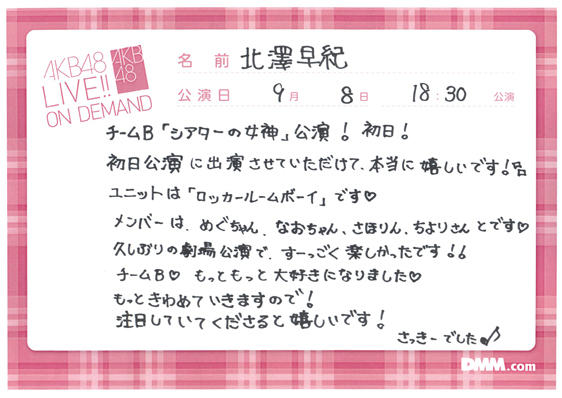 AKB48
LIVE!!
ON DEMAND
AKB
48
名 前 北澤早紀
公演日 9月 8日 18:30 公演
チームB「シアターの女神」公演! 初日!
初日公演に出演させていただけて、本当に嬉しいです!
ユニットは「ロッカールームボーイ」です♡
メンバーは、めぐちゃん、なおちゃん、さほりん、ちよりさんとです♡
久しぶりの劇場公演で、すーっごく楽しかったです!!
チームB♡ もっともっと大好きになりました♡
もっときわめていきますので!
注目していてくださると嬉しいです!
さっきーでした♪
DMM.com